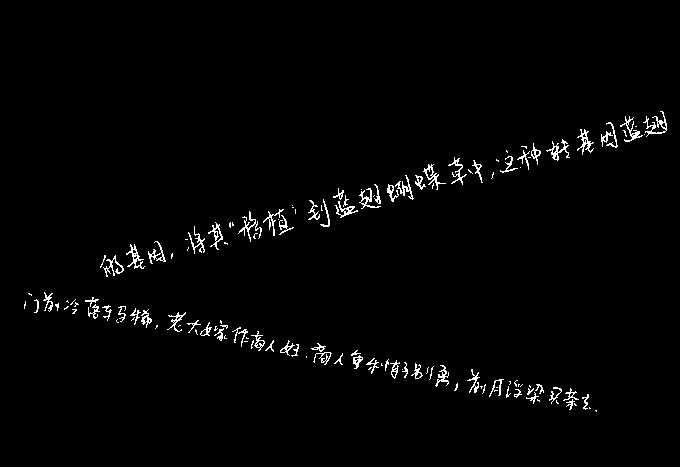 的基因，将其“移植”到蓝翅蝴蝶草中，这种转基因蓝翅
门前冷落车马稀，老大嫁作商人妇．商人重利轻别离，前月浮梁买茶去．